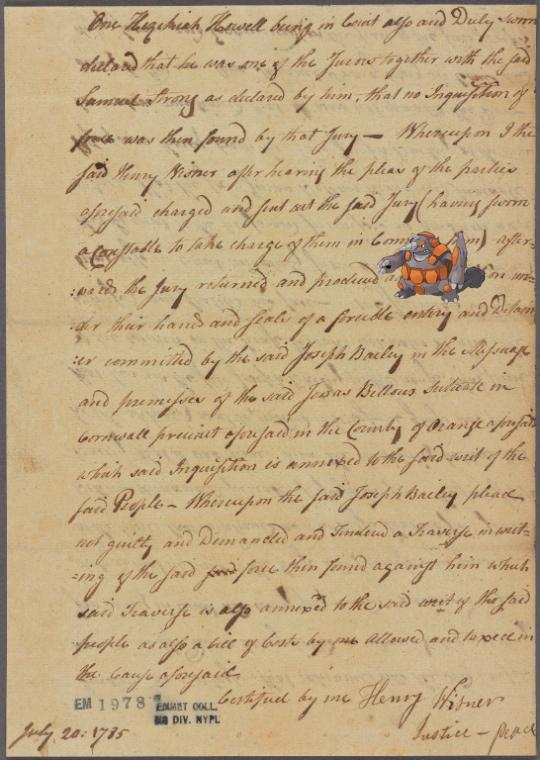 One Hezekiah Howell being in Court also and Duly sworn
declared that he was one of the Jurors together with the said
Samuel Strong as declared by him, that no Inquisition of
force was then found by that Jury — Whereupon I the
said Henry Wisner after hearing the pleas of the parties
aforesaid charged and sent out the said Jury (having sworn
a Constable to take charge of them in) after-
wards the Jury returned and produced on un-
der their hands and Seals of a forcible entry and Detain-
:er committed by the said Joseph Bailey in the Messuage
and premisses of the said Bellows Situate in
Cornwall precinct aforesaid in the County of Orange aforesaid
which said Inquisition is annexed to the said writ of the
said People – Whereupon the said Joseph Bailey plead
not guilty and Demanded and Tendred a Traverse in writ-
:ing of the said force then found against him which
said Traverse is also annexed to the said writ of the said
people as also a bill of Costs by me allowed and taxed in
the Cause aforesaid
Certified by me Henry Wisner
Justice – peace
EM 1978
EMMET COLL.
MS DIV. NYPL
July 20: 1785